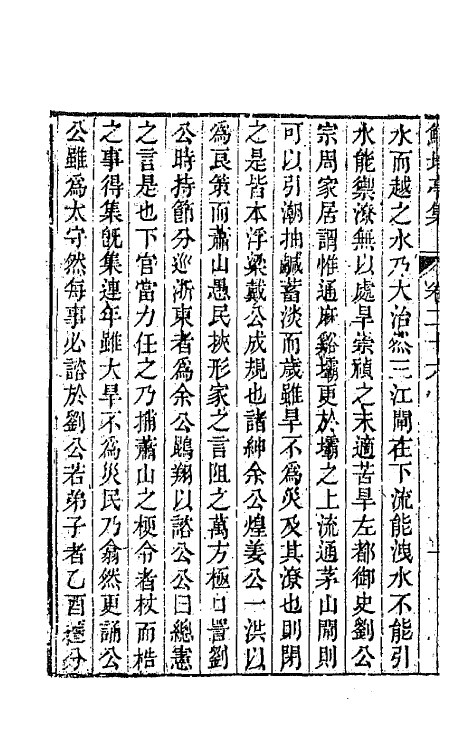 鮚埼亭集　卷二十六
水而越之水乃大治然三江閘在下流能洩水不能引
水能禦潦無以處旱崇禎之末適苦旱左都御史劉公
宗周家居謂惟通麻谿壩更於壩之上流通茅山閘則
可以引潮抽鹹蓄淡而歲雖旱不為災及其潦也則閉
之是皆本浮梁戴公成規也諸紳余公煌姜公一洪以
為良策而蕭山愚民挾形家之言阻之萬方極口詈劉
公時持節分巡浙東者為余公鵾翔以諮公公曰總憲
之言是也下官當力任之乃捕蕭山之梗令者杖而梏
之事得集旣集連年雖大旱不為災民乃翕然更誦公
公雖為太守然每事必諮於劉公若弟子者乙酉遷分